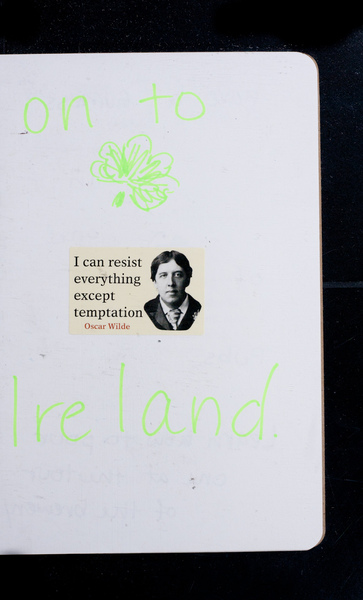 on to
I can resist
everything
except
temptation
Oscar Wilde
Ireland.